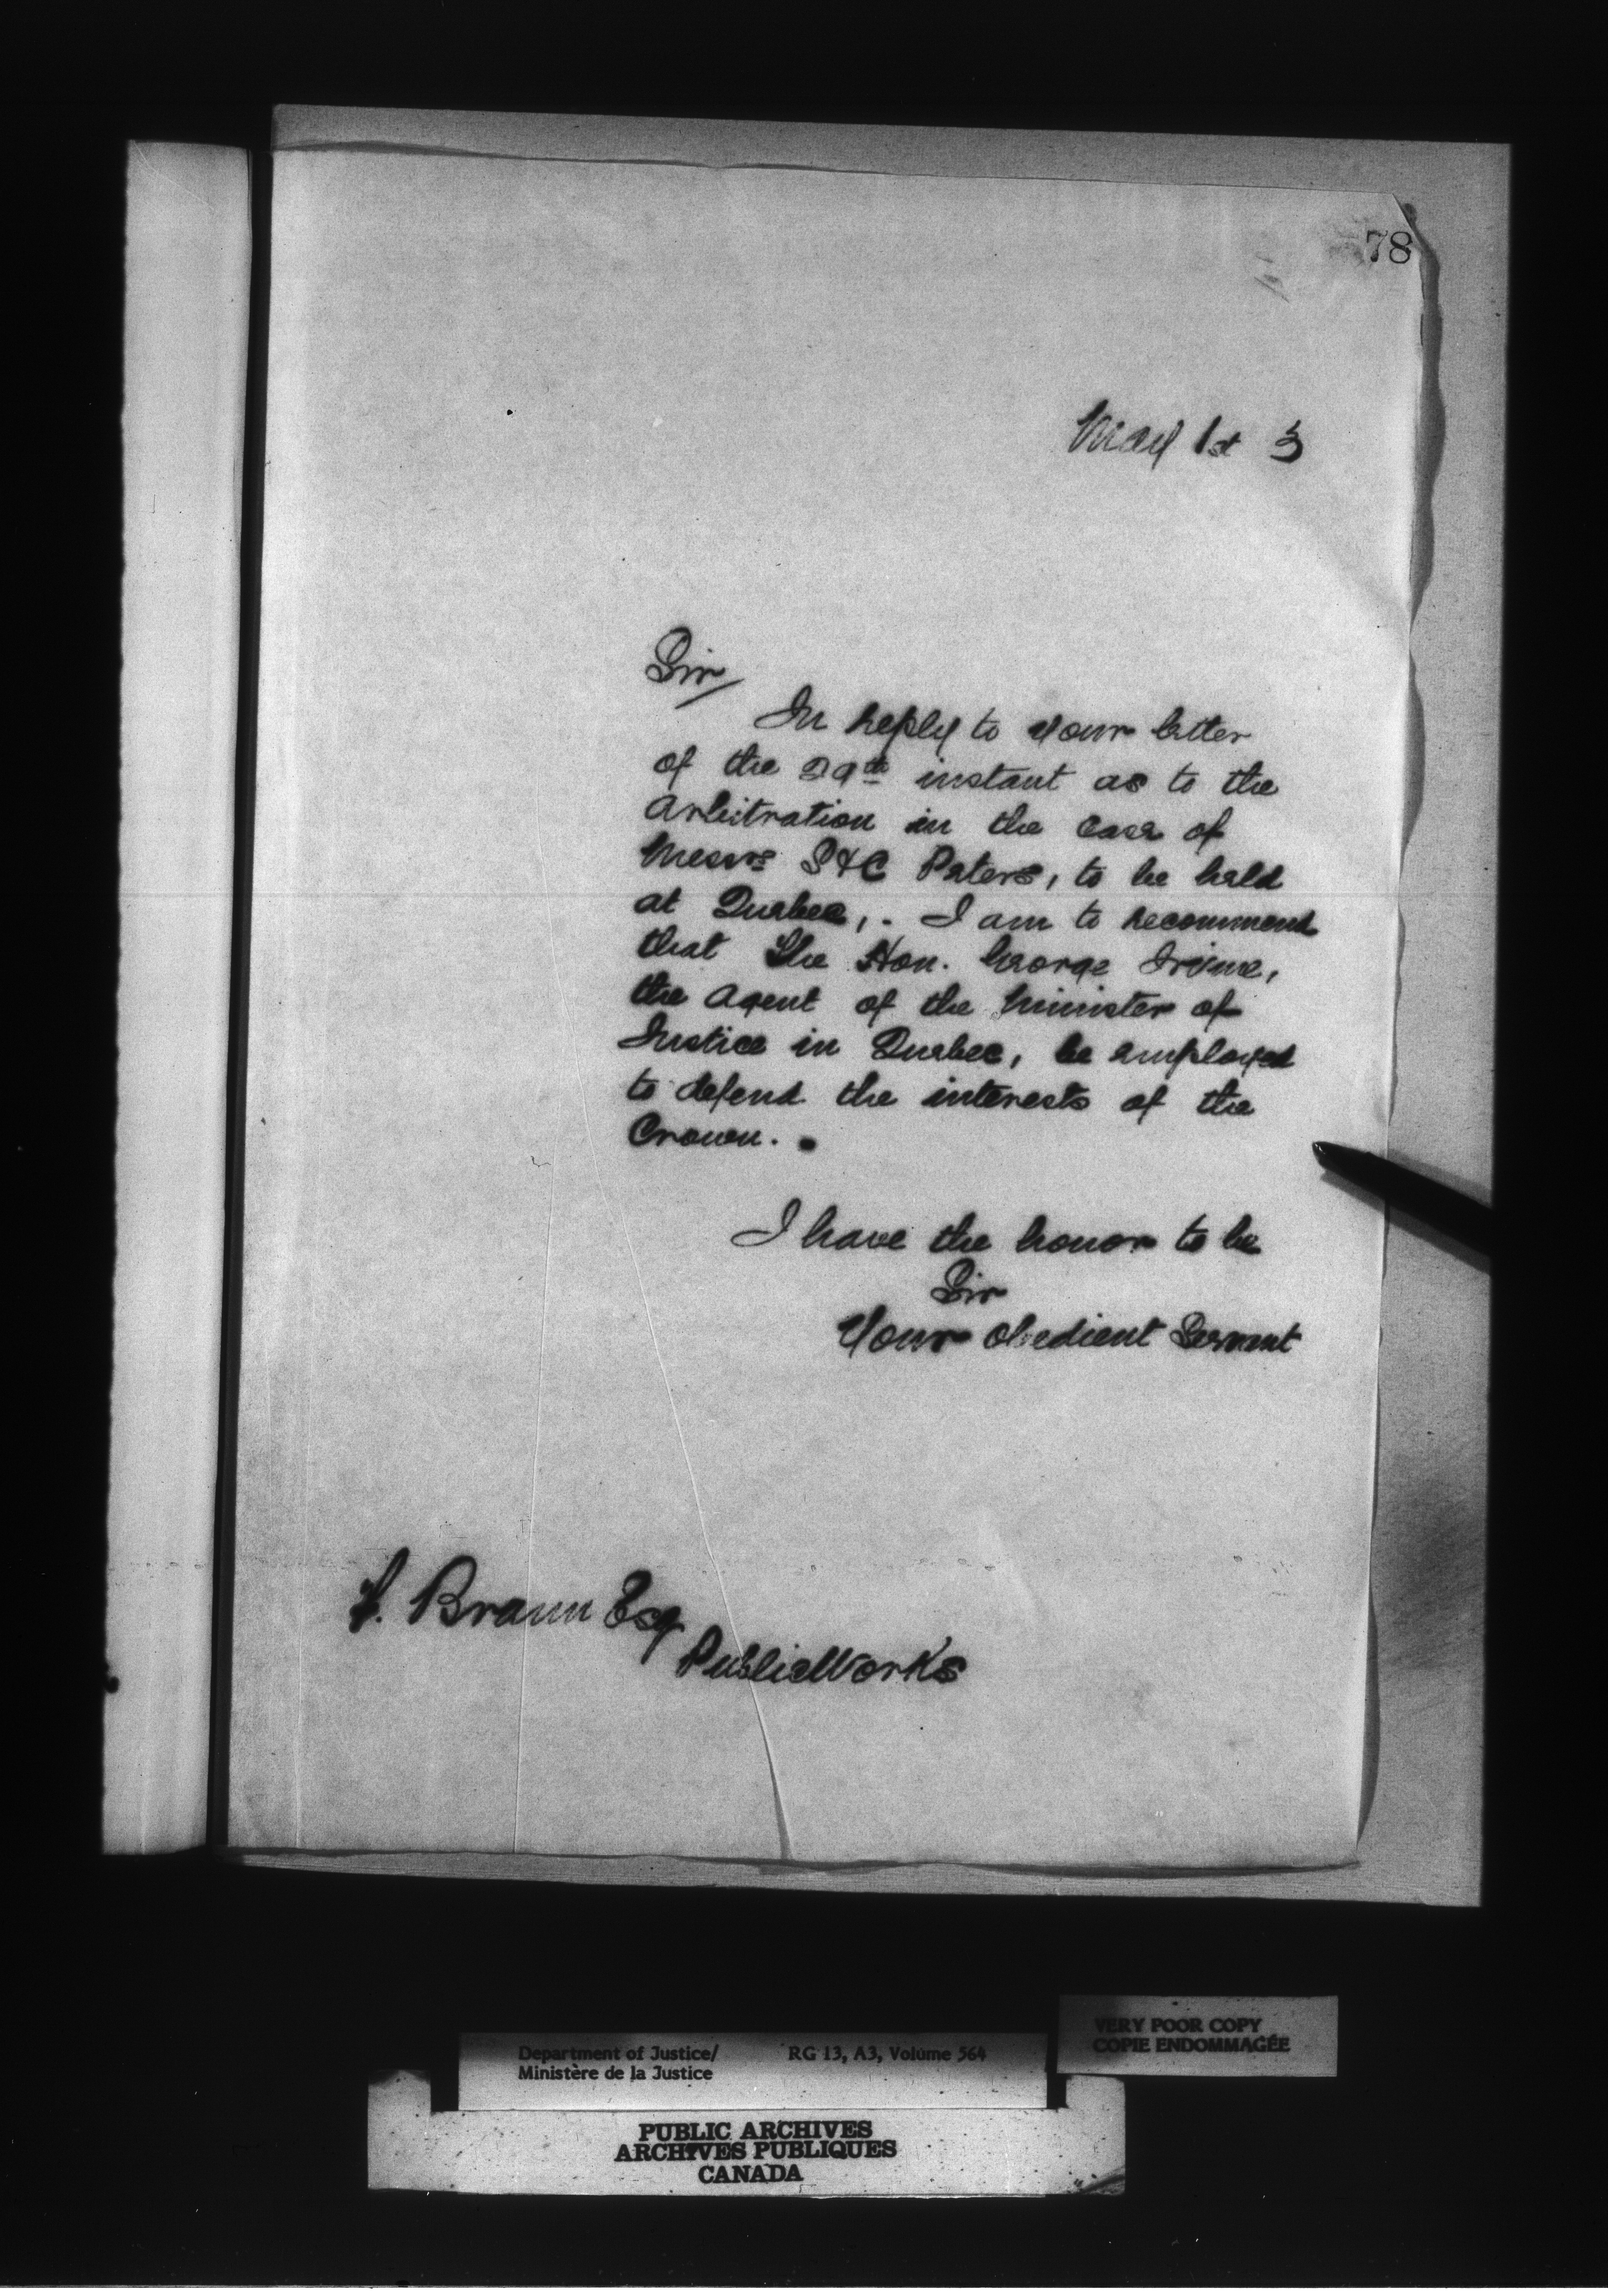 78
May 1st 3
Sir
In reply to your letter
of the 29th instant as to the
Arbitration in the case of
Messrs S & C Peters, to be held
at Quebec, . I am to recommend
that The Hon. George Irvine,
the Agent of the Minister of
Justice in Quebec, be employed
to defend the interests of the
Crown.
I have the honor to be
Sir
Your obedient Servant
F. Braun Esq
Public Works
VERY POOR COPY
COPIE ENDOMMAGÉE
Department of Justice/ RG 13, A3, Volume 564
Ministère de la Justice
PUBLIC ARCHIVES
ARCHIVES PUBLIQUES
CANADA